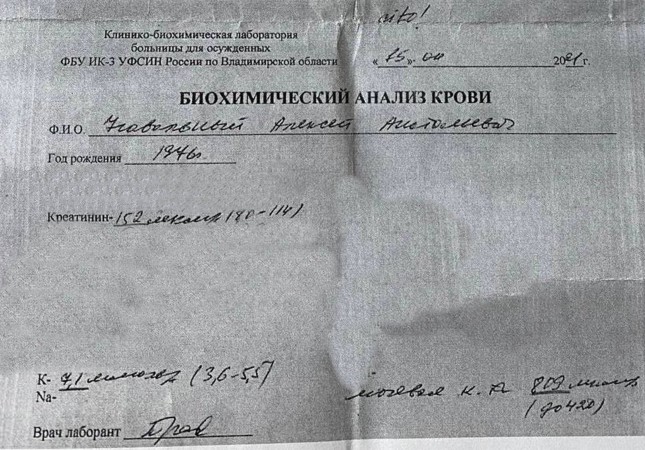 cito!
Клинико-биохимическая лаборатория
больницы для осужденных
ФБУ ИК-3 УФСИН России по Владимирской области
«15» 04 2021 г.
БИОХИМИЧЕСКИЙ АНАЛИЗ КРОВИ
Ф.И.О. Навальный Алексей Анатольевич
Год рождения 1976г.
Креатинин- 152 мкмол (80-114)
К- 7,1 ммоль (3,6-5,5)
Na-
мочевая к-та 809
(до 420)
Врач лаборант